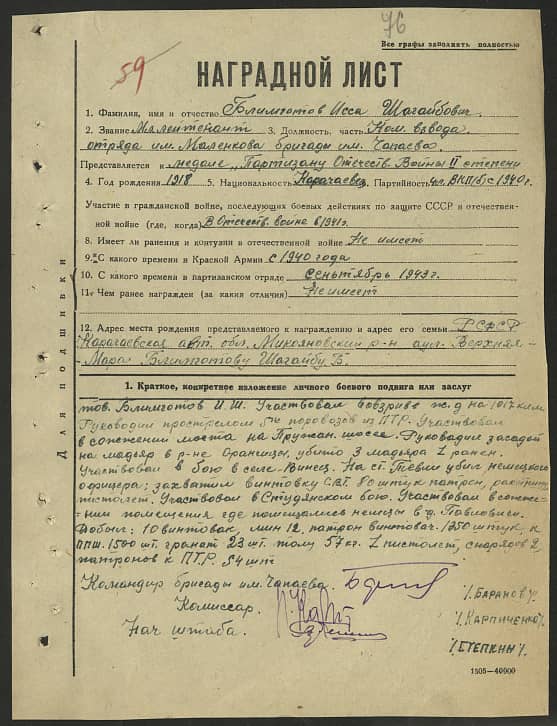 76
Все графы заполнять полностью
59
НАГРАДНОЙ ЛИСТ
1. Фамилия, имя и отчество Блимготов Исса Шагайбович.
2. Звание Мл. лейтенант 3. Должность, часть Ком. взвода
отряда им. Маленкова бригады им. Чапаева.
Представляется к медале „Партизану Отечеств. Войны II степени
4. Год рождения 1918 5. Национальность Карачаевец 6. Партийность чл. ВКП(б) с 1940 г.
Участие в гражданской войне, последующих боевых действиях по защите СССР и отечествен-
ной войне (где, когда) В Отечеств. войне в 1941 г.
8. Имеет ли ранения и контузии в отечественной войне Не имеет
9. С какого времени в Красной Армии с 1940 года
10. С какого времени в партизанском отряде сеньтябрь 1943 г.
11. Чем ранее награжден (за какия отличия) Не имеет
12. Адрес места рождения представляемого к награждению и адрес его семьи РСФСР
Карачаевская авт. обл. Микояновский р-н аул. Верхняя-
-Мара Блимготову Шагайбу Б.
Для подшивки
1. Краткое, конкретное изложение личного боевого подвига или заслуг
тов. Блимготов И.Ш. Участвовал во взриве ж.д на 1017 км.
Руководил прострелом 5ти паровозов из ПТР. Участвовал
в сожжении моста на Пружан. шоссе. Руководил засадой
на мадьяр в р-не Оранчицы, убито 3 мадьяра 1 ранен.
Участвовал в бою в селе Винец. На ст. Тевли убил немецкого
офицера; захватил винтовку СВТ. 80 штук патрон,
пистолет. Участвовал в Студянском бою. Участвовал в сожже-
нии помещения где помещались немцы в д.
Добыл: 10 винтовак, мин 12, патрон винтовоч. 1350 штук, к
ППШ. 1500 шт. гранат 23 шт. толу 57 кг. 1 пистолет, снарядов 2,
патронов к ПТР. 54 шт
Командир бригады им. Чапаева.
/. БАРАНОВ /.
Комиссар.
/. КАРПИЧЕНКО /.
Нач штаба.
/. СТЕПКИН /.
1505—40000